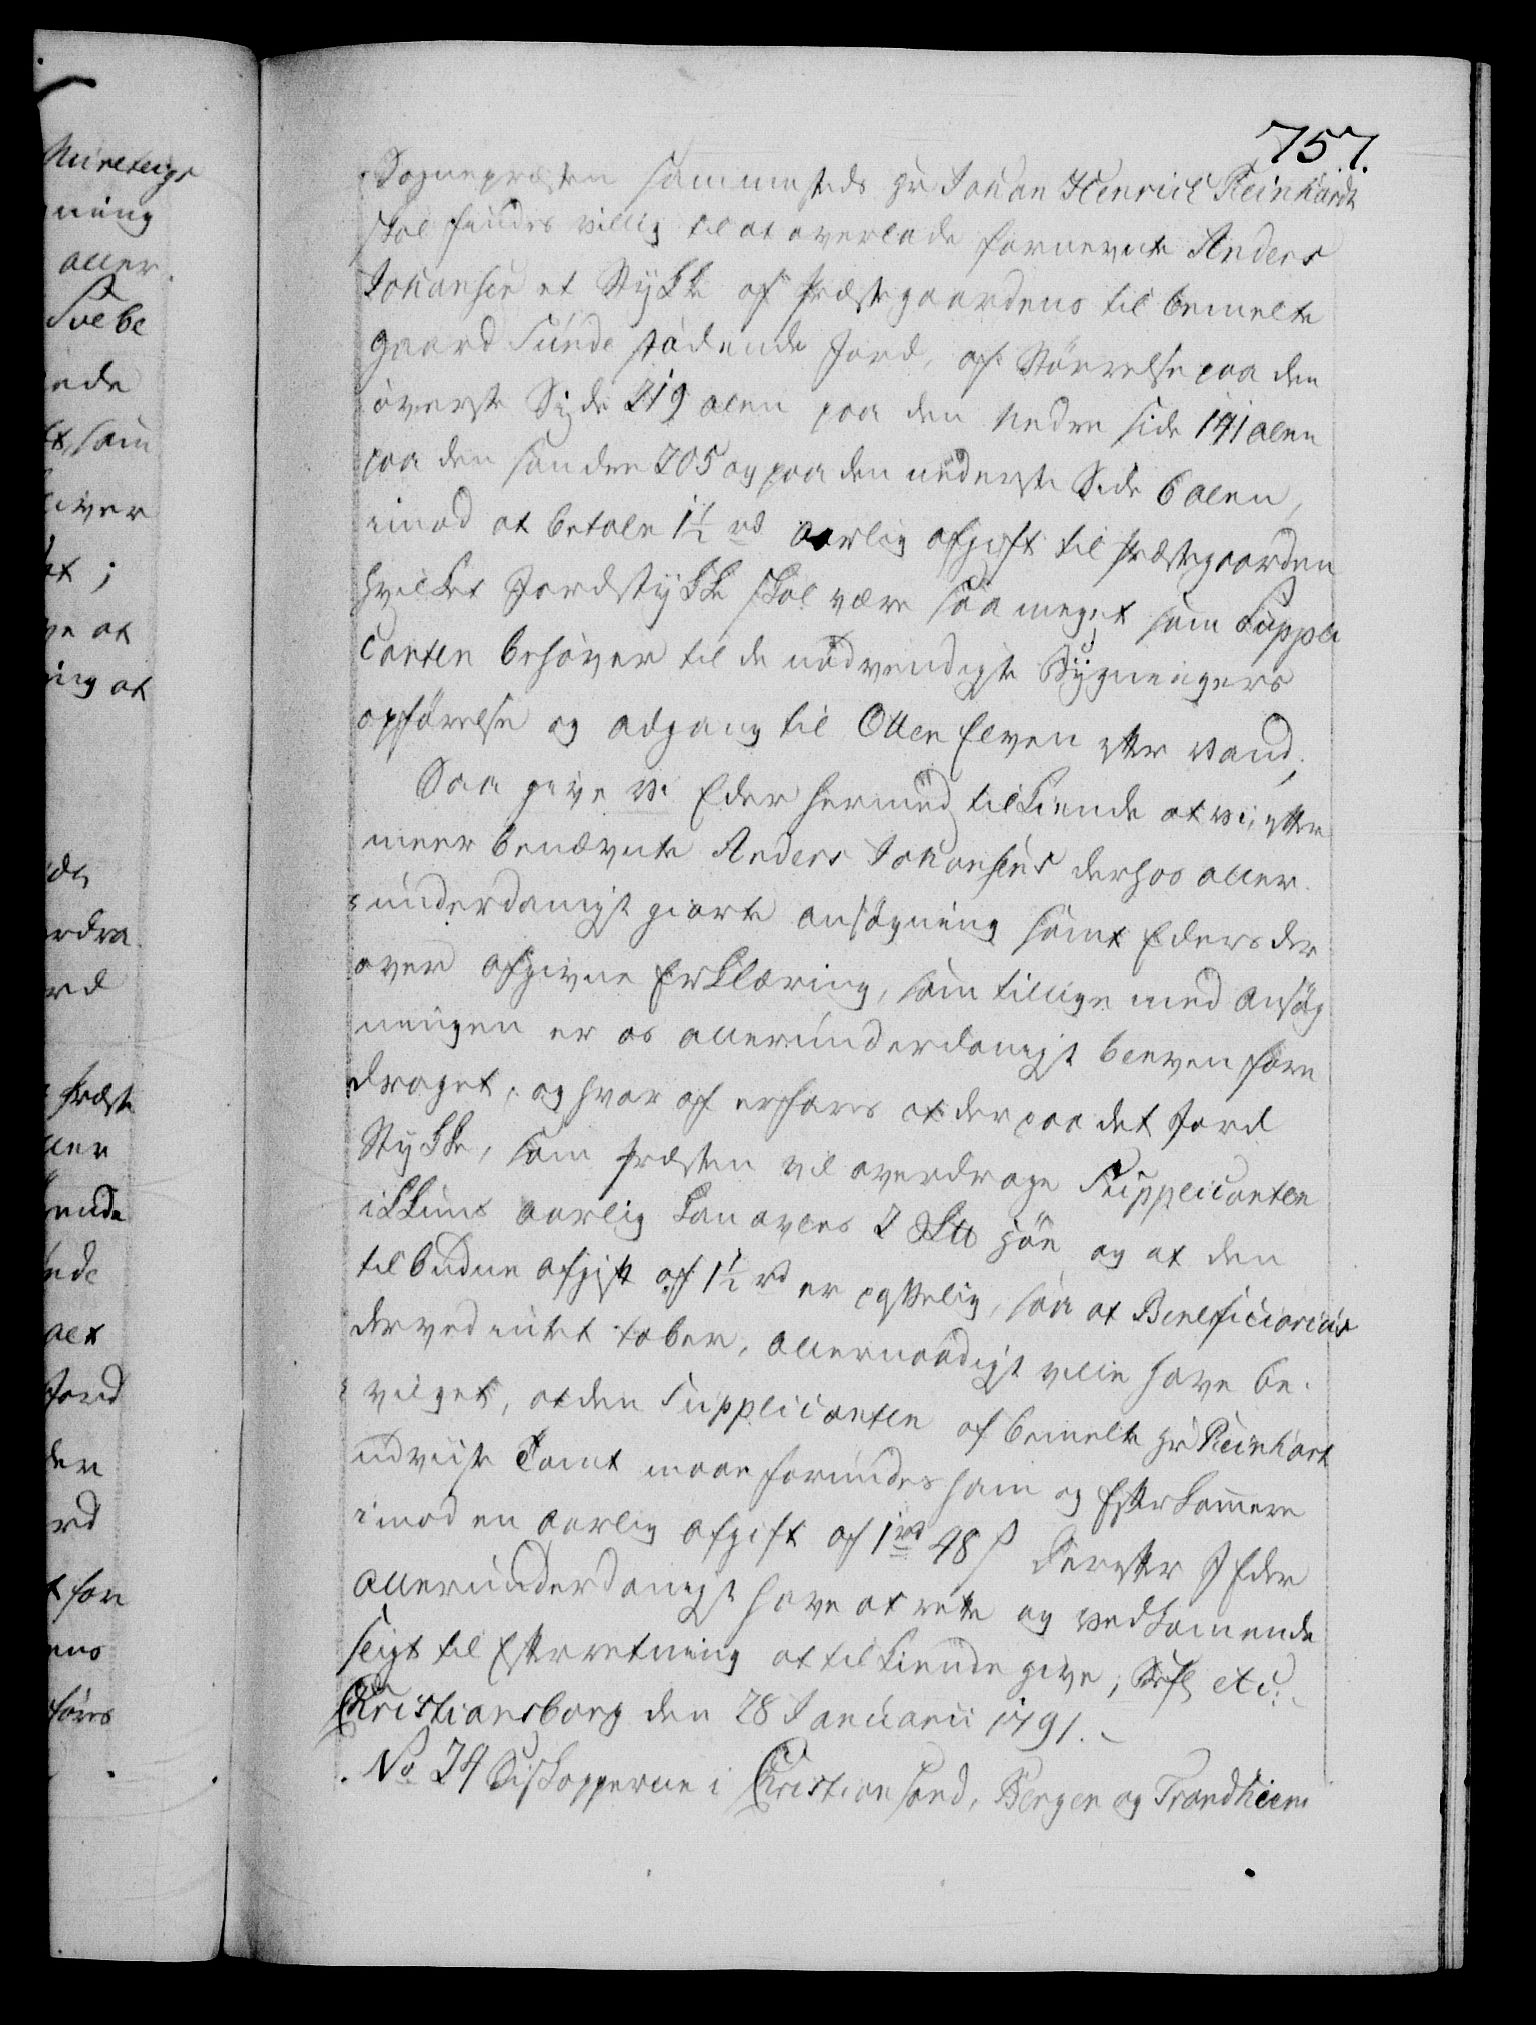 757.
Sognepræsten sammesteds Hr Johan Henrich Reinhardt
skal findes villig til at overlade fornevnte Anders
Johansen et Stykke af Præstegaardens til bemelte
Gaard Sunde stødende Jord, af Størrelse paa den
øverste Side 219 alen paa den nedre side 141 alen
paa den søndre 205 og paa den nederste Side 6 alen,
imod at betale 1½ rd aarlig afgift til Præstegaarden
hvilket Jordstykke skal være saa meget som Suppli
canten behøver til de nødvendigste Bygningers
opførelse og adgang til Otten Elven efter vand;
Saa give vi Eder hermed tilkiende at vi, efter
meer benævnte Anders Johansens derhos aller-
underdanigst giorte ansøgning samt Eders der
over afgivne Erklæring, som tillige med ansøg
ningen er os allerunderdanigst bleven fore
draget, og hvor af erfares at der paa det Jord
Stykke, som Præsten vil overdrage Supplicanten
ikkuns aarlig kan avles 2 Høe og at den
tilbudne afgift af 1½ rd er passelig, saa at Beneficiarius
derved intet taber, allernaadigst ville have be-
vilget, at den Supplicanten af bemelte Hr Reinhart
udviste Tomt maae forundes ham og Efterkommere
imod en aarlig afgift af 1 rd 48 s Derefter I Eder
allerunderdanigst have at rette og vedkommende
sligt til Efterretning at tilkiende give; Befl. etc:
Christiansborg den 28 Januarii 1791.
No 24 Biskopperne i Christiansand, Bergen og Trondhiem